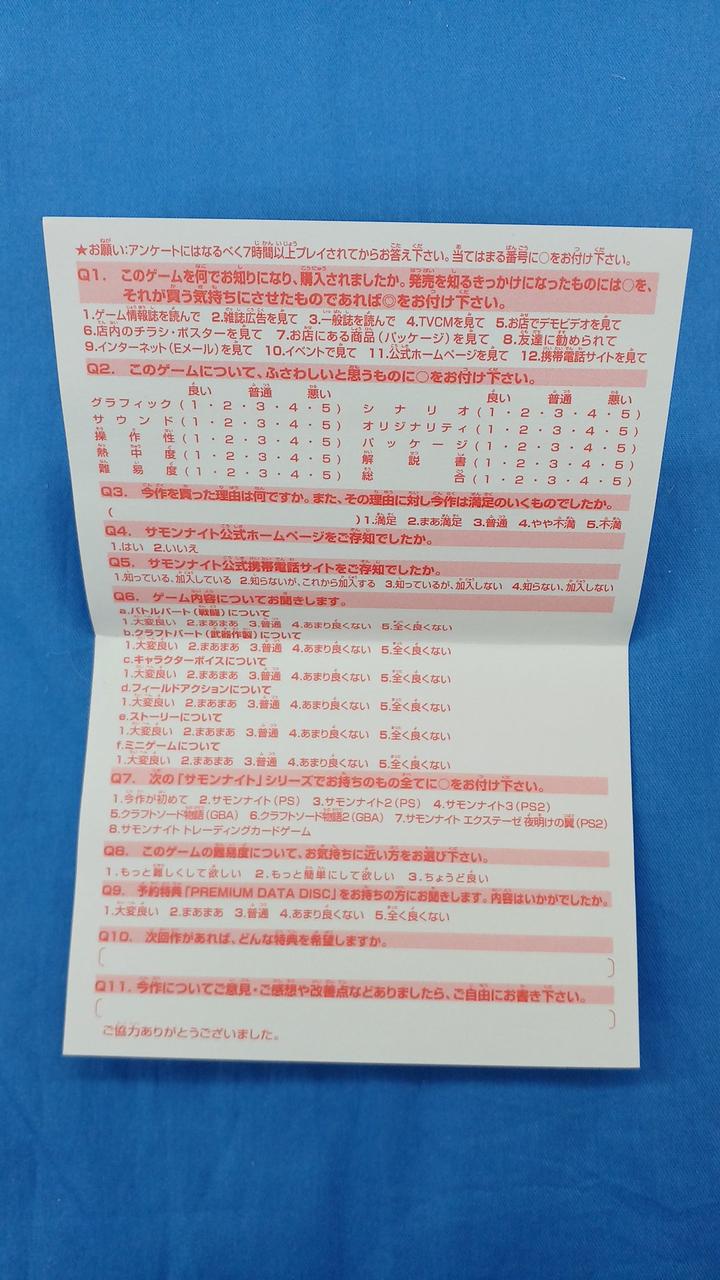 ★お願い:アンケートにはなるべく7時間以上プレイされてからお答え下さい。当てはまる番号に○をお付け下さい。
Q1. このゲームを何でお知りになり、購入されましたか。発売を知るきっかけになったものには○を、
それが買う気持ちにさせたものであれば◎をお付け下さい。
1.ゲーム情報誌を読んで 2.雑誌広告を見て 3.一般誌を読んで 4.TVCMを見て 5.お店でデモビデオを見て
6.店内のチラシ・ポスターを見て 7.お店にある商品(パッケージ)を見て 8.友達に勧められて
9.インターネット(Eメール)を見て 10.イベントで見て 11.公式ホームページを見て 12.携帯電話サイトを見て
Q2. このゲームについて、ふさわしいと思うものに○をお付け下さい。
良い 普通 悪い 良い 普通 悪い
グラフィック(1・2・3・4・5) シナリオ(1・2・3・4・5)
サウンド(1・2・3・4・5) オリジナリティ(1・2・3・4・5)
操作性(1・2・3・4・5) パッケージ(1・2・3・4・5)
熱中度(1・2・3・4・5) 解説書(1・2・3・4・5)
難易度(1・2・3・4・5) 総合(1・2・3・4・5)
Q3. 今作を買った理由は何ですか。また、その理由に対し今作は満足のいくものでしたか。
( )1.満足 2.まあ満足 3.普通 4.やや不満 5.不満
Q4. サモンナイト公式ホームページをご存知でしたか。
1.はい 2.いいえ
Q5. サモンナイト公式携帯電話サイトをご存知でしたか。
1.知っている、加入している 2.知らないが、これから加入する 3.知っているが、加入しない 4.知らない、加入しない
Q6. ゲーム内容についてお聞きします。
a.バトルパート(戦闘)について
1.大変良い 2.まあまあ 3.普通 4.あまり良くない 5.全く良くない
b.クラフトパート(武器作製)について
1.大変良い 2.まあまあ 3.普通 4.あまり良くない 5.全く良くない
c.キャラクターボイスについて
1.大変良い 2.まあまあ 3.普通 4.あまり良くない 5.全く良くない
d.フィールドアクションについて
1.大変良い 2.まあまあ 3.普通 4.あまり良くない 5.全く良くない
e.ストーリーについて
1.大変良い 2.まあまあ 3.普通 4.あまり良くない 5.全く良くない
f.ミニゲームについて
1.大変良い 2.まあまあ 3.普通 4.あまり良くない 5.全く良くない
Q7. 次の「サモンナイト」シリーズでお持ちのもの全てに○をお付け下さい。
1.今作が初めて 2.サモンナイト(PS) 3.サモンナイト2(PS) 4.サモンナイト3(PS2)
5.クラフトソード物語(GBA) 6.クラフトソード物語2(GBA) 7.サモンナイト エクステーゼ 夜明けの翼(PS2)
8.サモンナイト トレーディングカードゲーム
Q8. このゲームの難易度について、お気持ちに近い方をお選び下さい。
1.もっと難しくして欲しい 2.もっと簡単にして欲しい 3.ちょうど良い
Q9. 予約特典「PREMIUM DATA DISC」をお持ちの方にお聞きします。内容はいかがでしたか。
1.大変良い 2.まあまあ 3.普通 4.あまり良くない 5.全く良くない
Q10. 次回作があれば、どんな特典を希望しますか。
Q11. 今作についてご意見・ご感想や改善点などありましたら、ご自由にお書き下さい。
ご協力ありがとうございました。